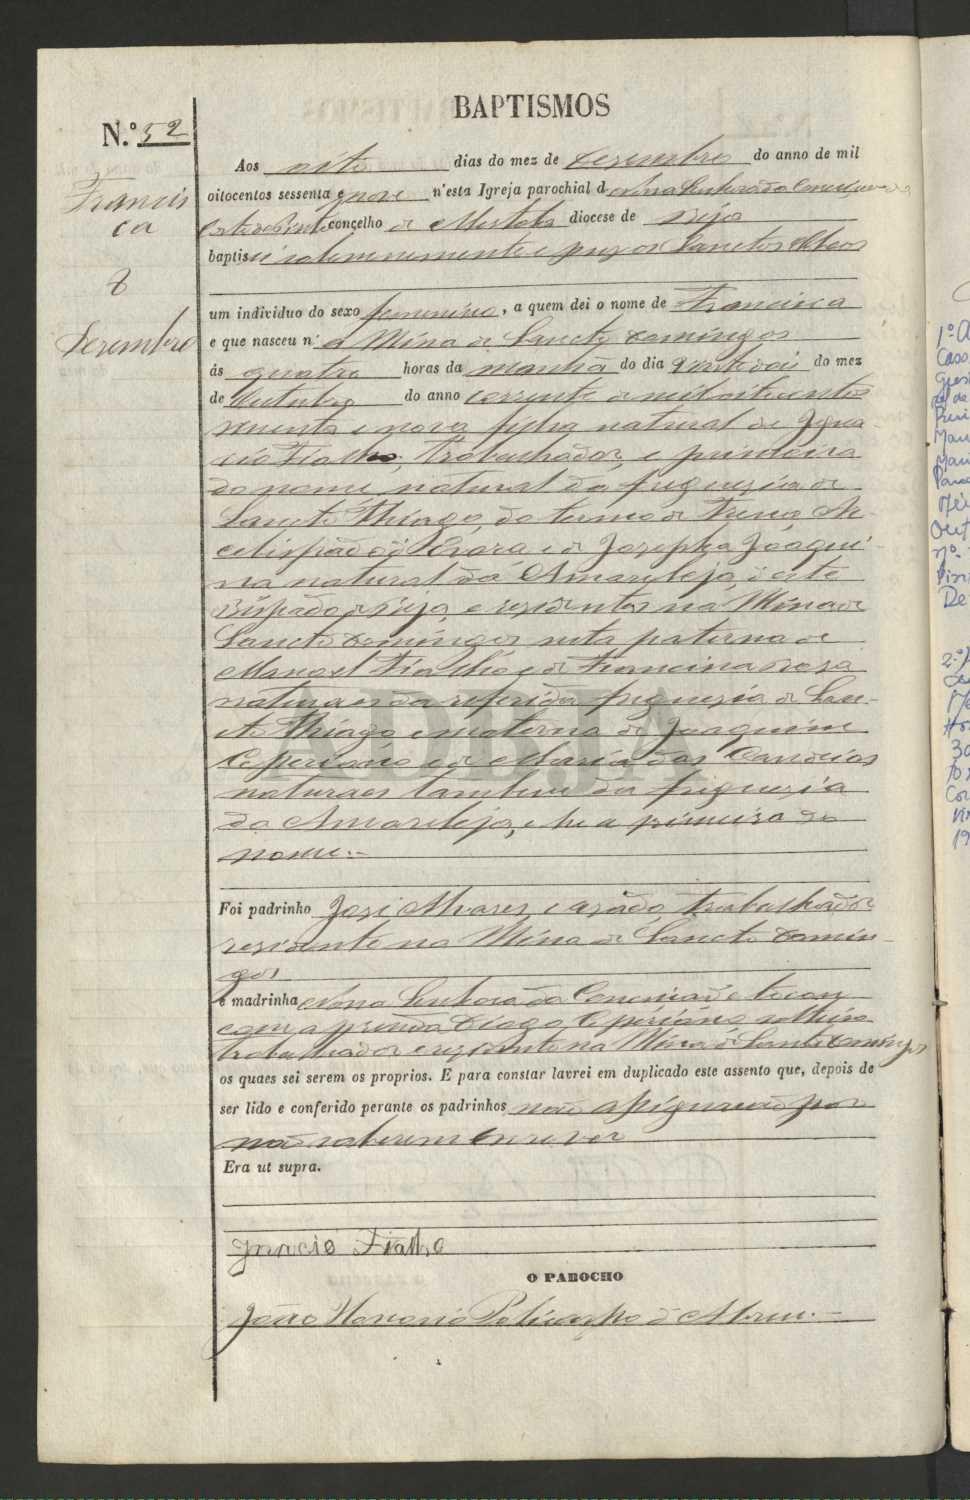 BAPTISMOS
N.º 52
Francis
ca
8
Dezembro
Aos oito dias do mez de Dezembro do anno de mil
oitocentos sessenta e nove n'esta Igreja parochial de Nossa Senhora da Conceição da
Corte do Pinto concelho de Mertola diocese de Beja
baptisei solemnemente e puz os Sanctos Oleos
um individuo do sexo feminino, a quem dei o nome de Francisca
e que nasceu n'a Mina de Sancto Domingos
ás quatro horas da manhã do dia vinte dois do mez
de Outubro do anno corrente de mil oitocentos
sessenta e nove, filha natural de Igna-
cio Fialho, trabalhador, e primeira
do nome, natural da freguezia de
Sancto Thiago, do termo de
cebispado d'Evora e de Josepha Joaqui-
na natural da Amareleja, d'este
Bispado de Beja, e residentes na Mina de
Sancto Domingos neta paterna de
Manoel Fialho e de Rosa
naturaes da referida freguezia de Sanc-
to Thiago e materna de Joaquim
e de Maria das Candeias
naturaes tambem da freguezia
da Amareleja, e he a primeira do
nome.-
Foi padrinho José Alvares, casado, trabalhador
residente na Mina de Sancto Domin-
gos
e madrinha Nossa Senhora da Conceição e tocou
com a prenda Diogo solteiro
trabalhador e residente na Mina de Sancto Domingos
os quaes sei serem os proprios. E para constar lavrei em duplicado este assento que, depois de
ser lido e conferido perante os padrinhos não assignarão por
não saberem escrever
Era ut supra.
Ignacio Fialho
O PAROCHO
João Honorio Policarpo d'Abreu.-
ADBJA